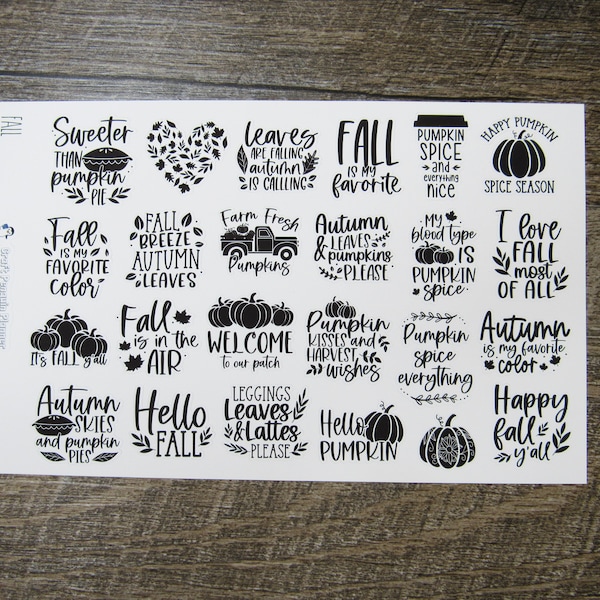 FALL
Sweeter
THAN
pumpkin
PIE
leaves
ARE FALLING
autumn
IS CALLING
FALL
is my
favorite
PUMPKIN
SPICE
and
everything
nice
HAPPY PUMPKIN
SPICE SEASON
Fall
IS MY
FAVORITE
color
FALL
BREEZE
AUTUMN
LEAVES
Farm Fresh
Pumpkins
Autumn
LEAVES
& pumpkins
PLEASE
MY
blood type
IS
PUMPKIN
spice
I love
FALL
most
OF ALL
It's FALL y'all
Fall
is in the
AIR
WELCOME
to our patch
Pumpkin
KISSES and
HARVEST
wishes
Pumpkin
spice
everything
Autumn
is my favorite
color
Autumn
SKIES
and pumpkin
PIES
Hello
FALL
LEGGINGS
Leaves
& Lattes
PLEASE
Hello
PUMPKIN
Happy
fall
y'all